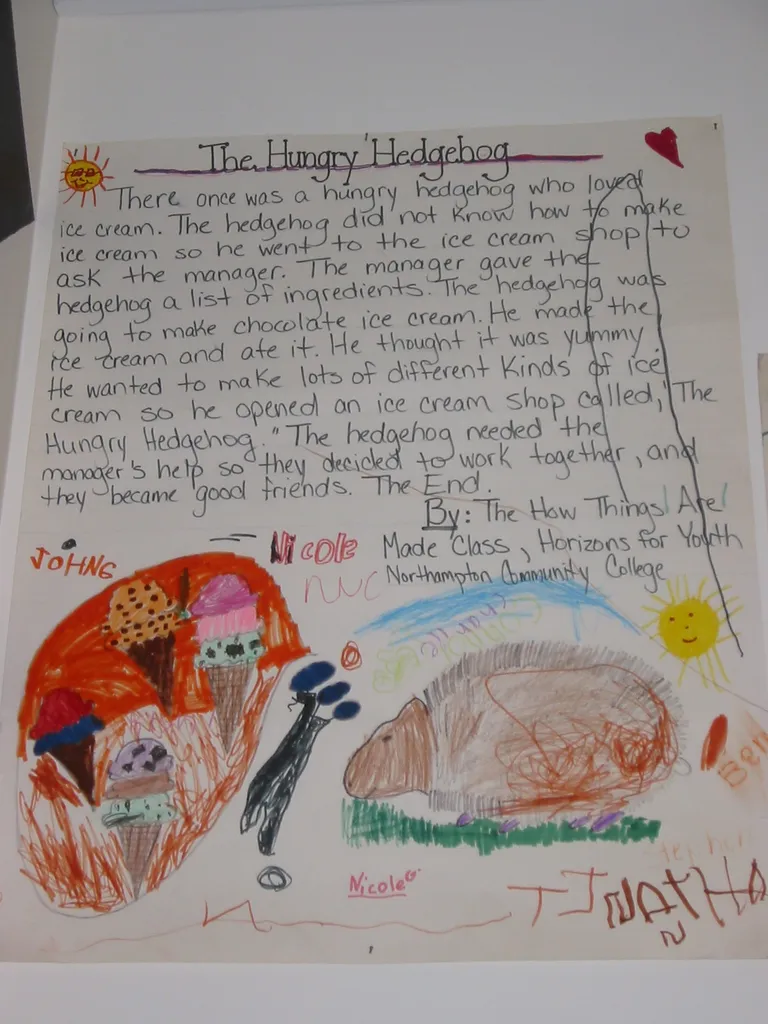 The Hungry Hedgehog
There once was a hungry hedgehog who loved
ice cream. The hedgehog did not know how to make
ice cream so he went to the ice cream shop to
ask the manager. The manager gave the
hedgehog a list of ingredients. The hedgehog was
going to make chocolate ice cream. He made the
ice cream and ate it. He thought it was yummy.
He wanted to make lots of different kinds of ice
cream so he opened an ice cream shop called, "The
Hungry Hedgehog." The hedgehog needed the
manager's help so they decided to work together, and
they became good friends. The End.
By: The How Things Are
Made Class, Horizons for Youth
Northampton Community College
JOHNS
Nicole
Charlie
Ben
Nicole
TJ
NATHAN